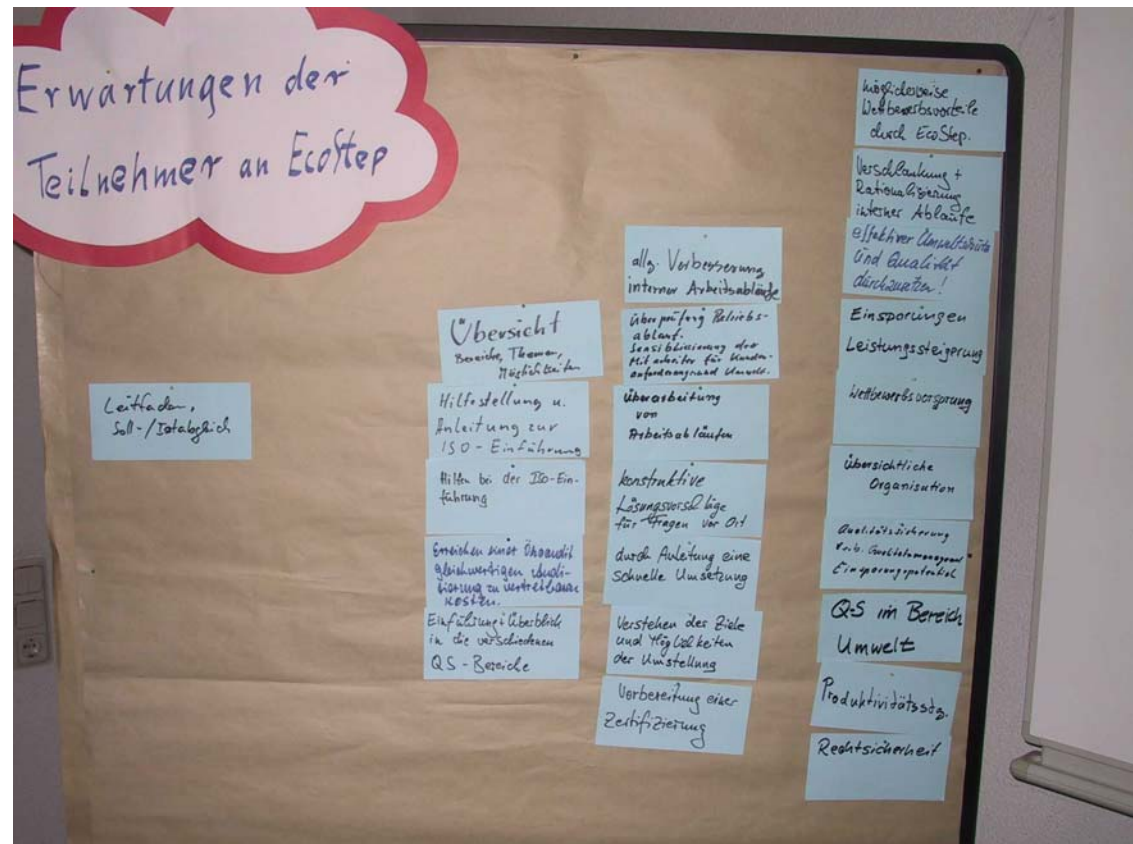 Erwartungen der
Teilnehmer an EcoStep
Leitfaden,
Soll-/Istabgleich
Übersicht
Bereiche, Themen,
Möglichkeiten
Hilfestellung u.
Anleitung zur
ISO-Einführung
Hilfen bei der ISO-Ein-
führung
Erreichen einer Ökoaudit
gleichwertigen
zu vertretbaren
Kosten.
Einführung + Überblick
in die verschiedenen
QS-Bereiche
allg. Verbesserung
interner Arbeitsabläufe
Überprüfung Betriebs-
ablauf.
Sensibilisierung der
Mitarbeiter für Kunden-
anforderung und Umwelt.
Überarbeitung
von
Arbeitsabläufen
konstruktive
Lösungsvorschläge
für Fragen vor Ort
durch Anleitung eine
schnelle Umsetzung
Verstehen der Ziele
und Möglichkeiten
der Umstellung
Vorbereitung einer
Zertifizierung
möglicherweise
Wettbewerbsvorteile
durch EcoStep.
Verschlankung +
Rationalisierung
interner Abläufe
effektiver Umweltschutz
und Qualität
durchzusetzen!
Einsparungen
Leistungssteigerung
Wettbewerbsvorsprung
übersichtliche
Organisation
Qualitätssicherung
Qualitätsmanagement
Einsparungspotential
QS im Bereich
Umwelt
Produktivitätsstg.
Rechtsicherheit